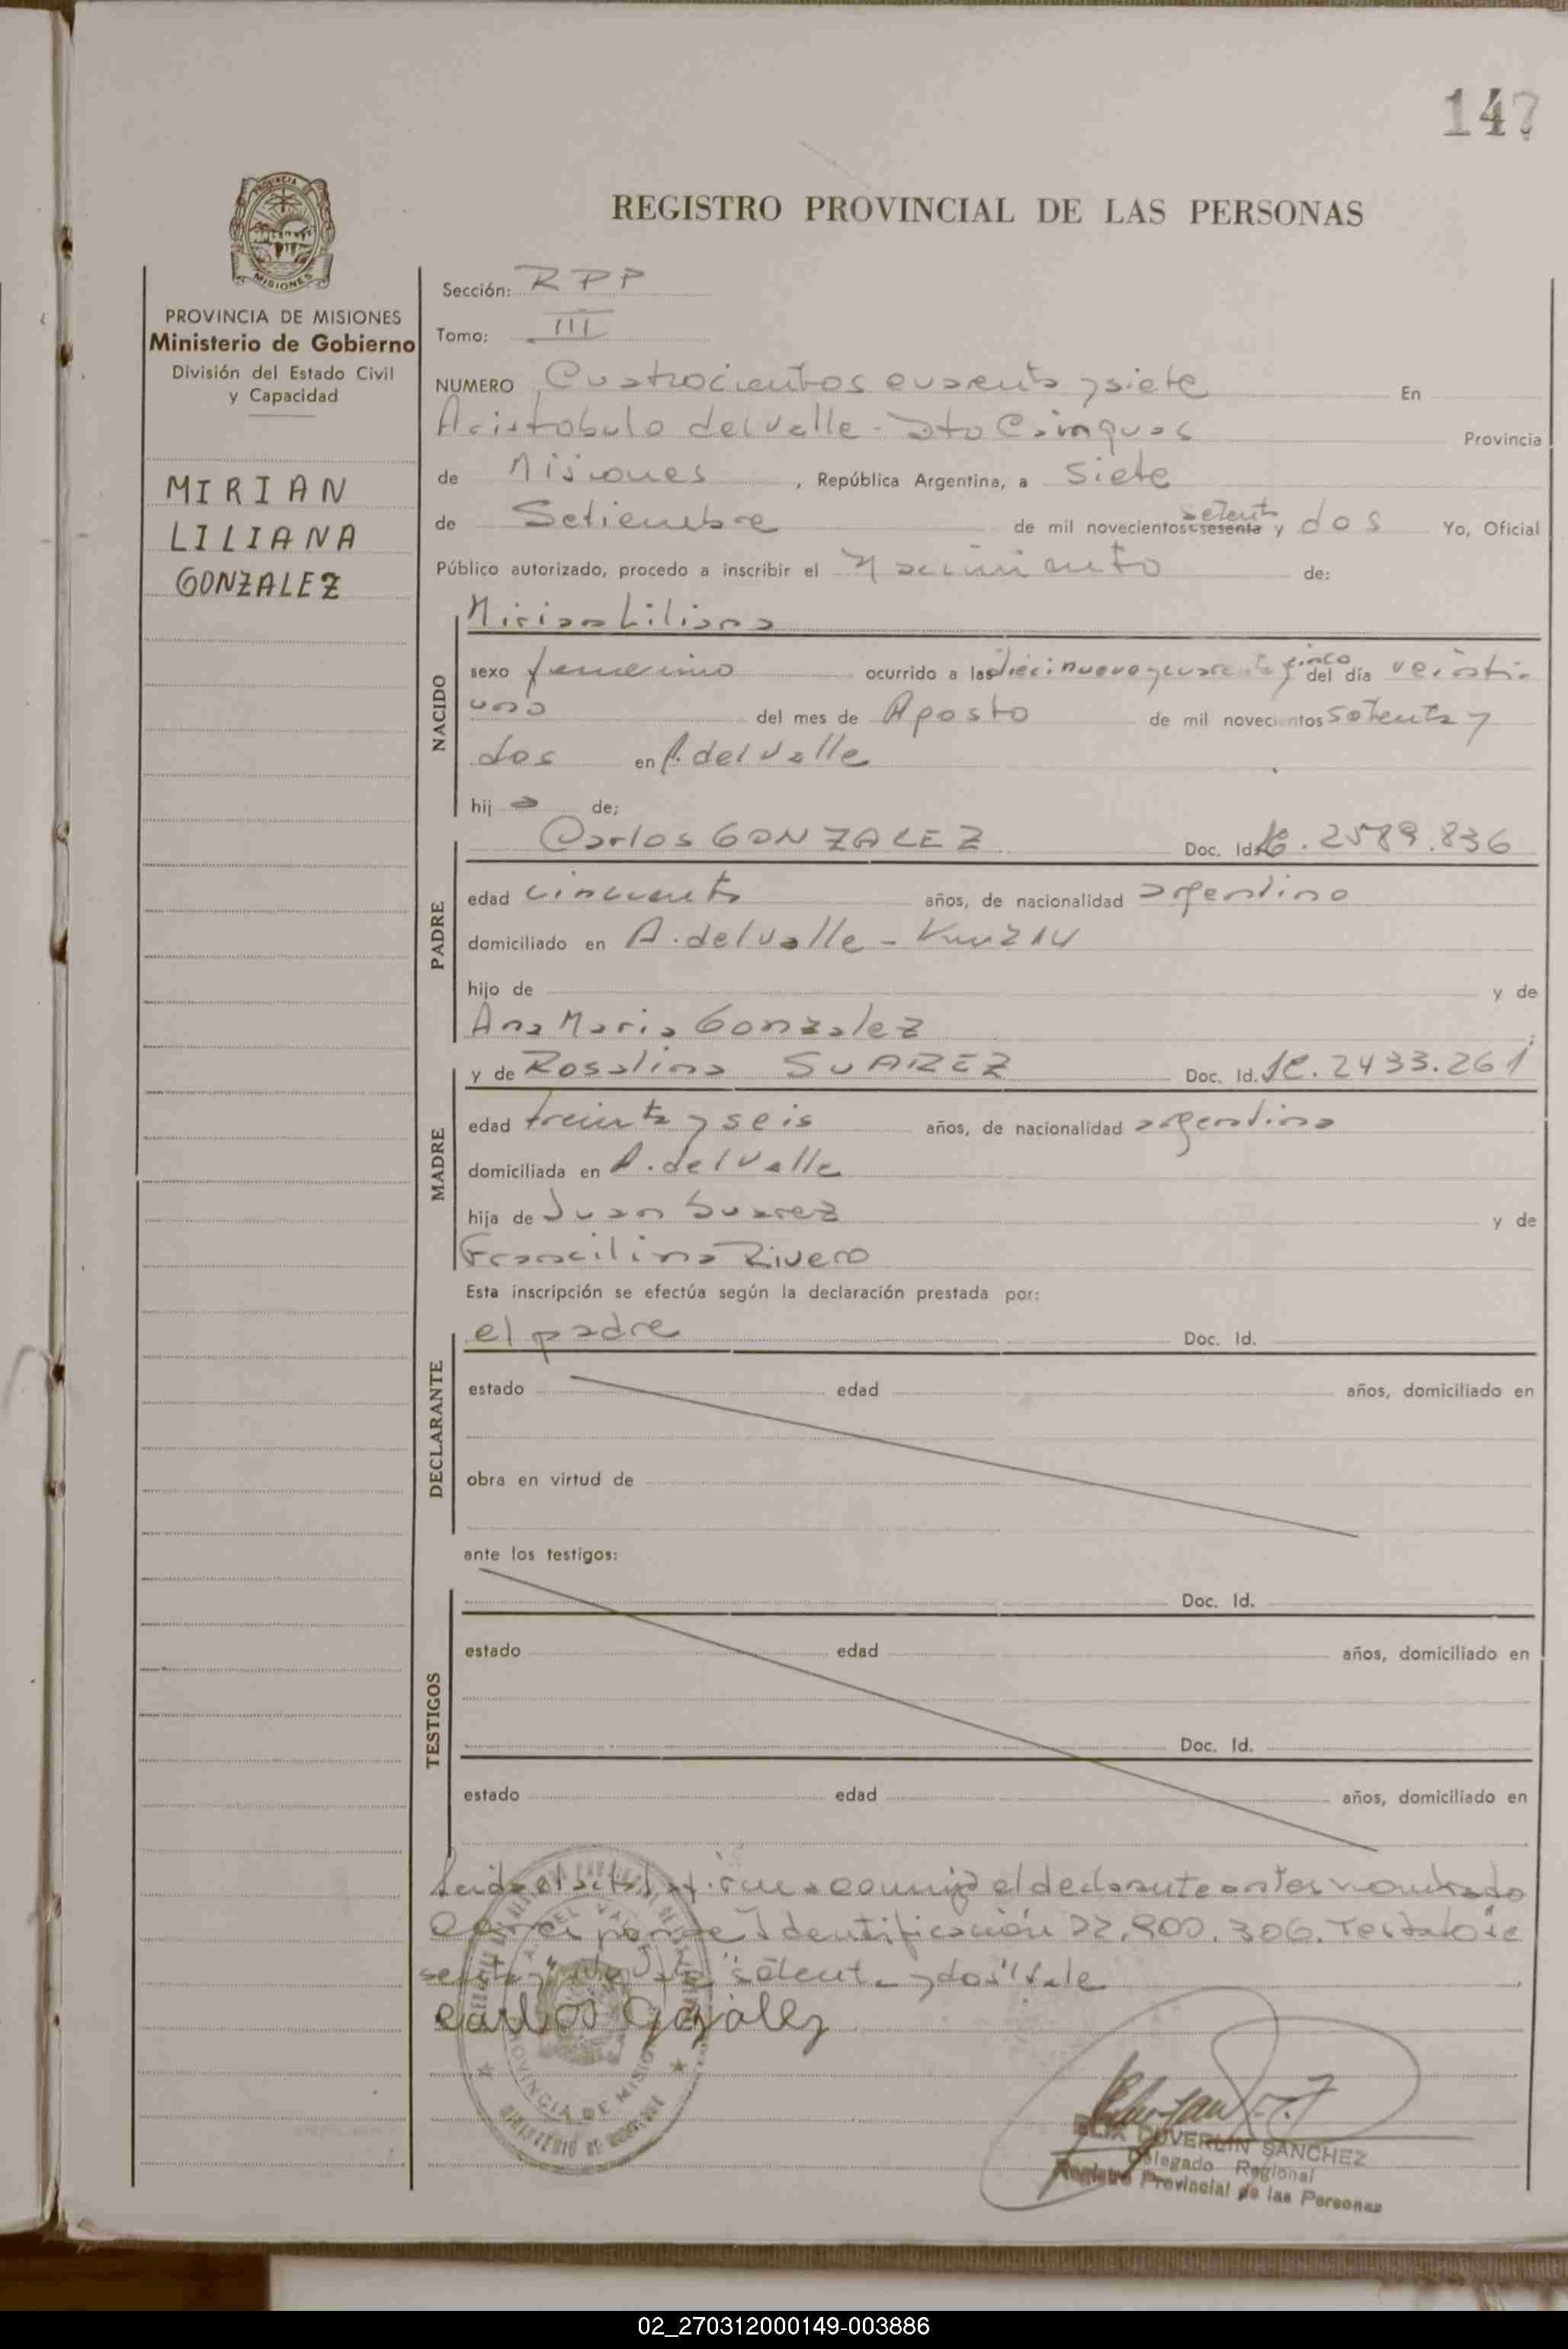 147
REGISTRO PROVINCIAL DE LAS PERSONAS
PROVINCIA
MISIONES
PROVINCIA DE MISIONES
Ministerio de Gobierno
División del Estado Civil
y Capacidad
MIRIAN
LILIANA
GONZALEZ
Sección: RPP
Tomo: III
NUMERO Cuatrocientos cuarenta y siete En
Aristobulo del Valle - Dto Cainguas Provincia
de Misiones, República Argentina, a siete
de Setiembre de mil novecientos sesenta setenta y dos Yo, Oficial
Público autorizado, procedo a inscribir el Nacimiento de:
NACIDO
Mirian Liliana
sexo femenino ocurrido a las diecinueve y cuarenta y cinco del día veinti-
uno del mes de Agosto de mil novecientos setenta y
dos en A. del Valle
hij a de;
PADRE
Carlos GONZALEZ Doc. Id. 2589.836
edad cincuenta años, de nacionalidad argentino
domiciliado en A. del Valle - Km 214
hijo de y de
Ana Maria Gonzalez
MADRE
y de Rosalina SUAREZ Doc. Id. 2433.261
edad treinta y seis años, de nacionalidad argentina
domiciliada en A. del Valle
hija de Juan Suarez y de
Francilina Rivero
Esta inscripción se efectúa según la declaración prestada por:
DECLARANTE
el padre Doc. Id.
estado edad años, domiciliado en
obra en virtud de
ante los testigos:
TESTIGOS
Doc. Id.
estado edad años, domiciliado en
Doc. Id.
estado edad años, domiciliado en
Leida el acta la firma conmigo el declarante antes nombrado
Corresponde Identificación 22.900.306. Testado:
"setenta y dos" Vale
Carlos Gozalez
PROVINCIA DE MISIONES
DUVERLIN SANCHEZ
Delegado Regional
Registro Provincial de las Personas
02_270312000149-003886